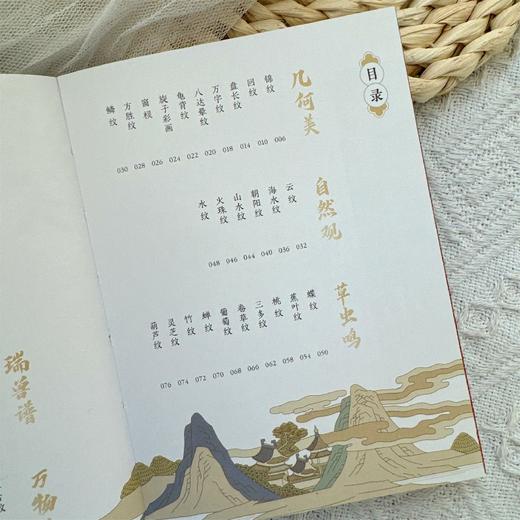 目录
几何美
锦纹 006
回纹 010
盘长纹 014
万字纹 018
八达晕纹 020
龟背纹 022
旋子彩画 024
窗棂 026
方胜纹 028
鳞纹 030
自然观
云纹 032
海水纹 036
朝阳纹 040
山水纹 044
火珠纹 046
水纹 048
草虫鸣
蝶纹 050
蕉叶纹 054
桃纹 058
三多纹 062
卷草纹 066
葡萄纹 068
蝉纹 070
竹纹 072
灵芝纹 074
葫芦纹 076
瑞兽谱
万物